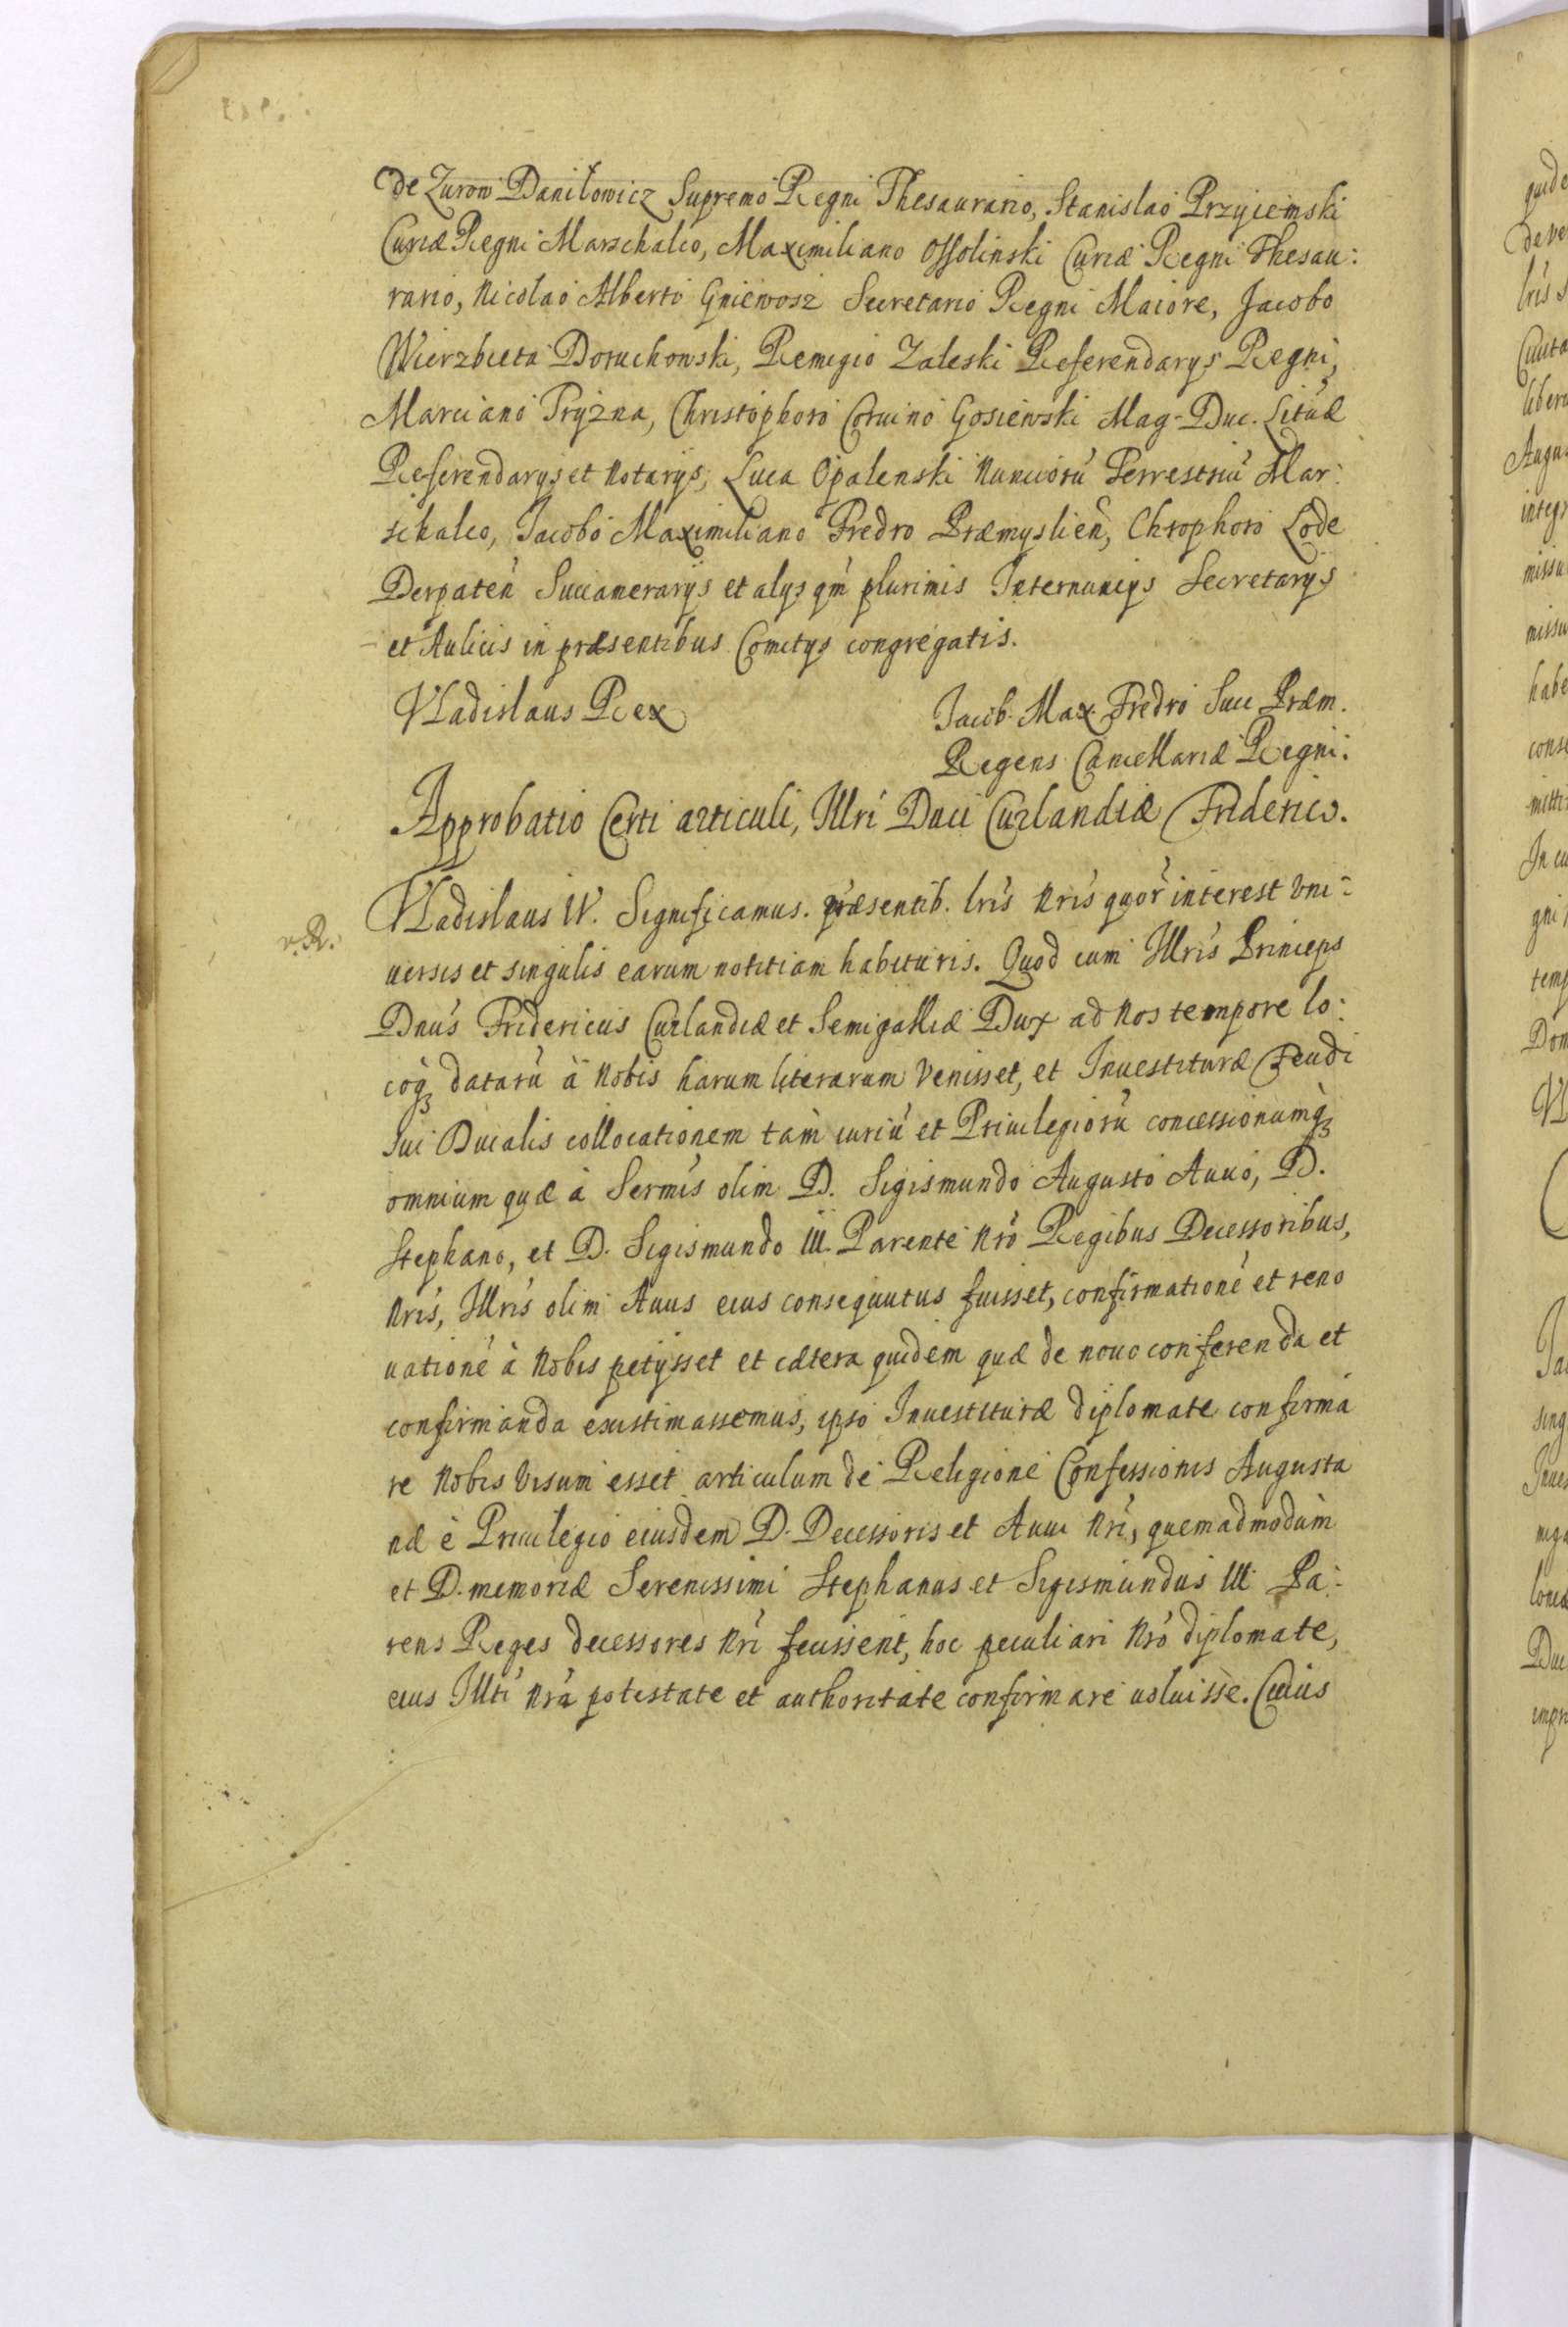 de Zurow Daniłowicz Supremo Regni Thesaurario, Stanislao Przyiemski
Curiæ Regni Marschalco, Maximiliano Ossolinski Curiæ Regni Thesau:
rario, Nicolao Alberto Gniewosz Secretario Regni Maiore, Jacobo
Wierzbieta Doruchowski, Remigio Zaleski Referendarys Regni,
Marciano Tryzna, Christophoro Coruino Gosiewski Mag. Duc. Lituæ
Referendarys et Notarys, Luca Opalenski Nunciorū Terrestriū Mar:
schalco, Jacobo Maximiliano Fredro Præmyslień, Chrophoro Lode
Derpateń Succamerarys et alys qm̃ plurimis Internuncys Secretarys
et Aulicis in præsentibus Comitys congregatis.
Vladislaus Rex
Jacob. Max Fredro Succ Præm.
Regens Cancellariæ Regni.
Approbatio Certi articuli, Illri Duci Curlandiæ Friderico.
Vladislaus IV. Significamus. præsentib. lris nris quor interest vni-
uersis et singulis earum notitiam habituris. Quod cum Illris Princeps
Dnus Fridericus Curlandiæ et Semigalliæ Dux ad Nos tempore lo:
coq₃ datarū à Nobis harum literarum venisset, et Inuestituræ Feudi
sui Ducalis collocationem tam iuriū et Priuilegiorū concessionumq₃
omnium quæ à Sermis olim D. Sigismundo Augusto Auuo, D.
Stephano, et D. Sigismundo III. Parente Nro Regibus Decessoribus,
Nris, Illris olim Auus eius consequutus fuisset, confirmationē et reno
uationē à Nobis petysset et cætera quidem quæ de nouo conferenda et
confirmanda existimassemus, ipso Inuestituræ diplomate confirma
re Nobis visum esset articulum de Religione Confessionis Augusta
næ è Priuilegio eiusdem D. Decessoris et Auui Nri, quemadmodum
et D. memoriæ Serenissimi Stephanus et Sigismundus III Pa:
rens Reges decessores Nri fecissent, hoc peculiari Nro diplomate,
eius Illti Nra potestate et authoritate confirmare uoluisse. Cuius